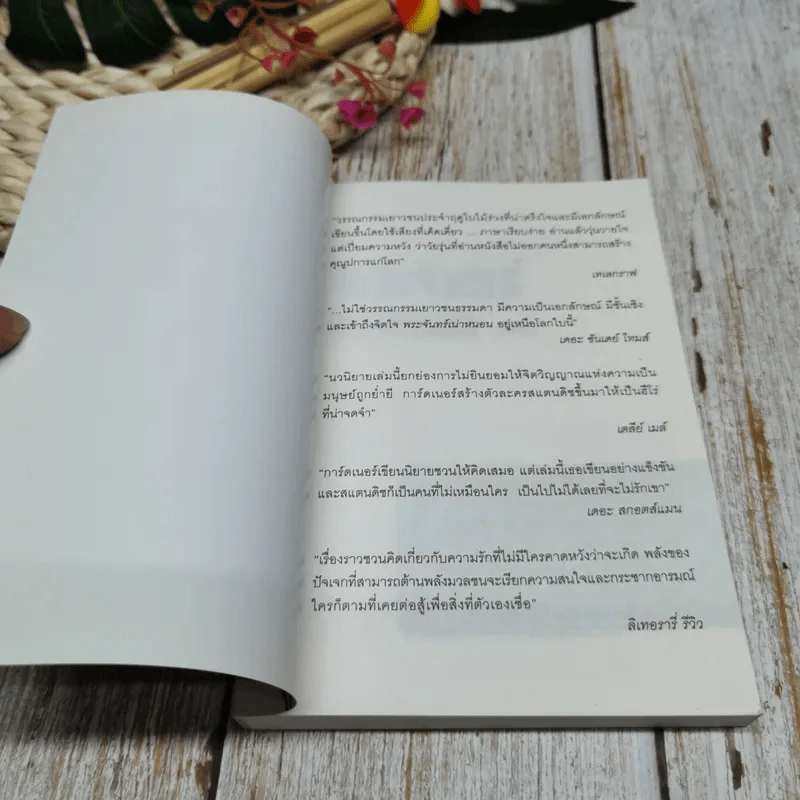 “วรรณกรรมเยาวชนประจำฤดูใบไม้ร่วงที่น่าตรึงใจและมีเอกลักษณ์
เขียนขึ้นโดยใช้เสียงที่เด็ดเดี่ยว ... ภาษาเรียบง่าย อ่านแล้ววุ่นวายใจ
แต่เปี่ยมความหวัง ว่าวัยรุ่นที่อ่านหนังสือไม่ออกคนหนึ่งสามารถสร้าง
คุณูปการแก่โลก”
เทเลกราฟ
“...ไม่ใช่วรรณกรรมเยาวชนธรรมดา มีความเป็นเอกลักษณ์ มีชั้นเชิง
และเข้าถึงจิตใจ พระจันทร์เน่าหนอน อยู่เหนือโลกใบนี้”
เดอะ ซันเดย์ ไทมส์
“นวนิยายเล่มนี้ยกย่องการไม่ยินยอมให้จิตวิญญาณแห่งความเป็น
มนุษย์ถูกย่ำยี การ์ดเนอร์สร้างตัวละครสแตนดิชขึ้นมาให้เป็นฮีโร่
ที่น่าจดจำ”
เดลีย์ เมล์
“การ์ดเนอร์เขียนนิยายชวนให้คิดเสมอ แต่เล่มนี้เธอเขียนอย่างแข็งขัน
และสแตนดิชก็เป็นคนที่ไม่เหมือนใคร เป็นไปไม่ได้เลยที่จะไม่รักเขา”
เดอะ สกอตส์แมน
“เรื่องราวชวนคิดเกี่ยวกับความรักที่ไม่มีใครคาดหวังว่าจะเกิด พลังของ
ปัจเจกที่สามารถต้านพลังมวลชนจะเรียกความสนใจและกระชากอารมณ์
ใครก็ตามที่เคยต่อสู้เพื่อสิ่งที่ตัวเองเชื่อ”
ลิเทอรารี่ รีวิว